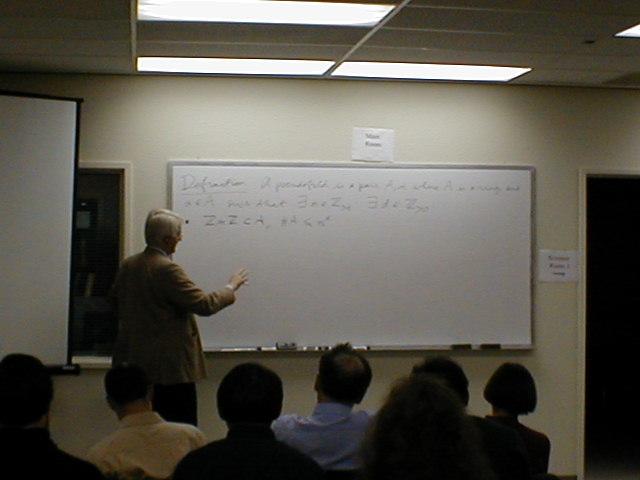 Main
Room
Definition A pseudofield is a pair A, α where A is a ring and
α ∈ A such that ∃ n ∈ Z>1 ∃ d ∈ Z>0
• Z/nZ ⊂ A, #A ≤ n^d
Room 1